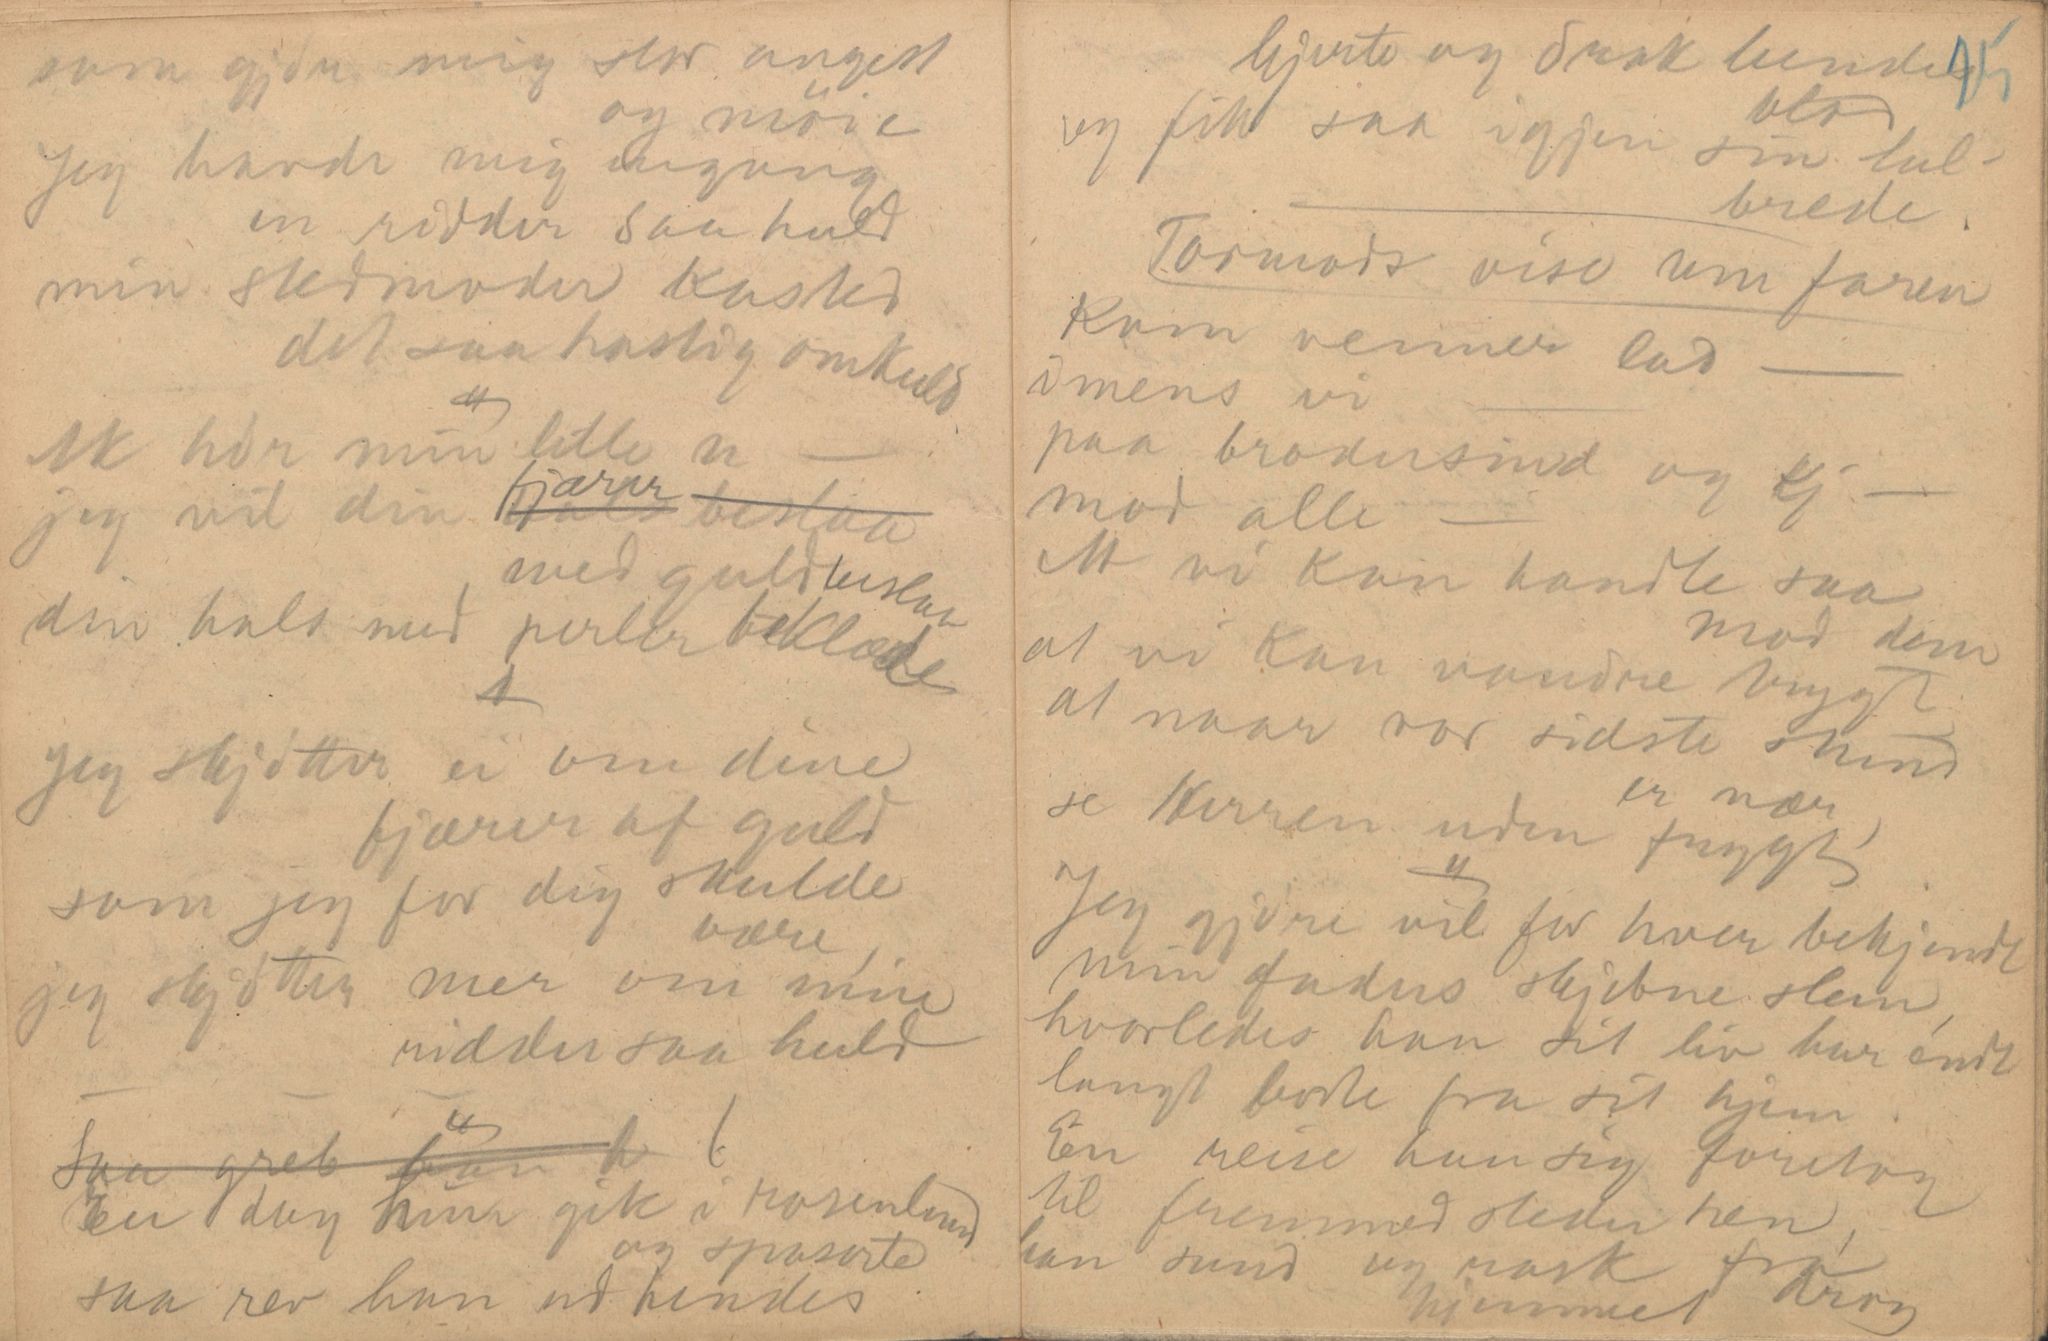 som gjør mig stor angest
og möie
Jeg havde mig engang
en ridder saa huld
min stedmoder kasted
det saa hastig omkuld
"
Ak hör min lille n —
jeg vil din hals beslaa
fjærer
med guld beslaa
din hals med perler beklæde
Jeg skjötter ei om dine
fjærer af guld
som jeg for dig skulde
være,
jeg skjötter mer om mine
ridder saa huld
— — —
"
Saa greb han h (
En dag hun gik i rosenlund
og spaserte
saa rev han ud hendes
hjerte og drak hendes 75
blod
og fik saa igjen sin hel-
brede.
Tormods vise um faren
Kom venner lad —
imens vi —
paa brodersind og kj —
mod alle —
At vi kan handle saa
mod dem
at vi kan vandre trygt
at naar vor sidste stund
er nær,
se Herren uden frygt
"
Jeg gjöre vil for hver bekjendt
min faders skjebne slem,
hvorledes han sit liv har endt
langt borte fra sit hjem.
En reise han sig foretog
til fremmed steder hen,
han sund og rask fra
hjemmet drog